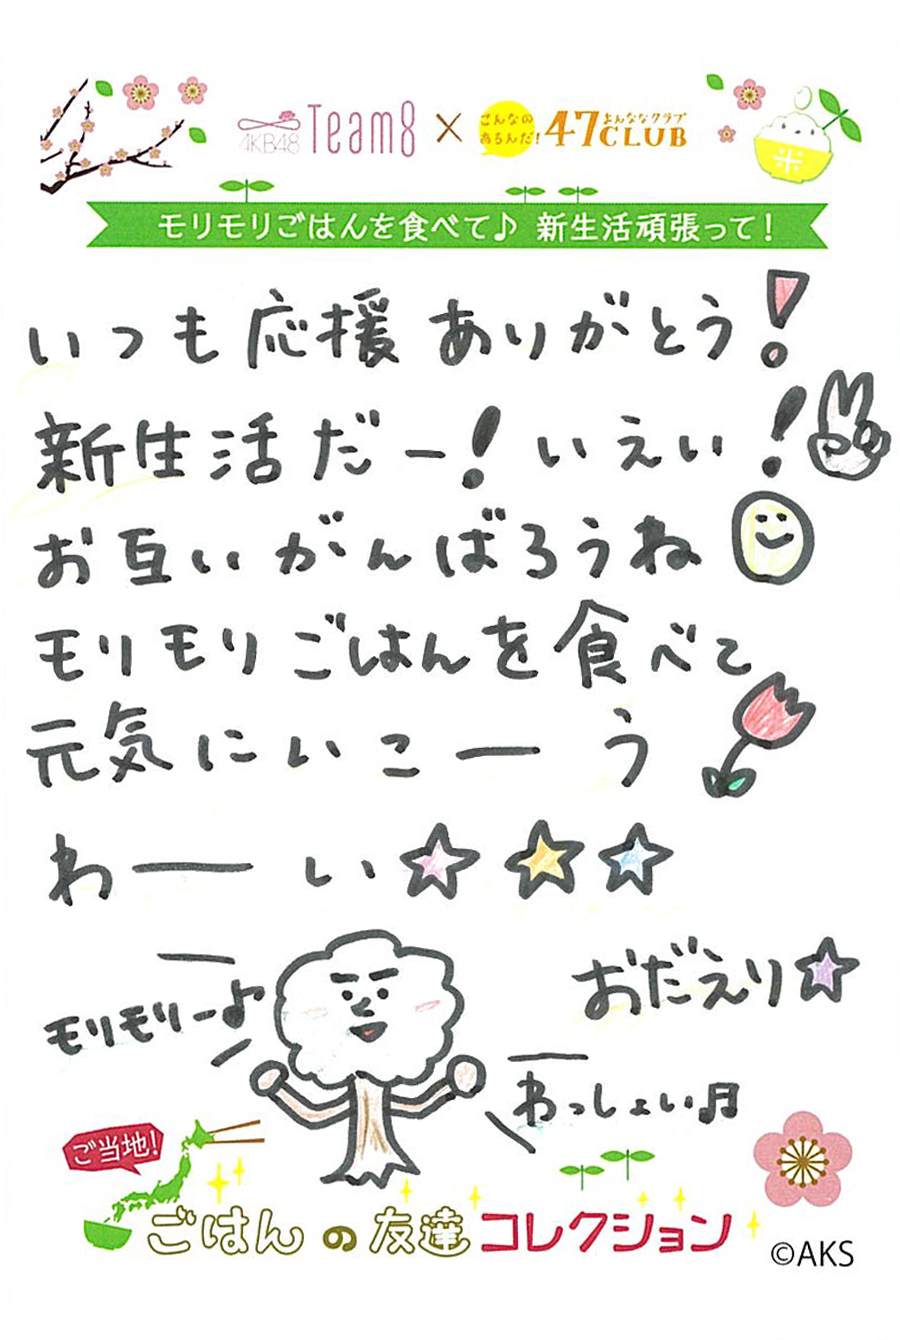 AKB48 Team8 × こんなのあるんだ! 47CLUB よんななクラブ
米
モリモリごはんを食べて♪ 新生活頑張って!
いつも応援ありがとう!
新生活だー!いえい!
お互いがんばろうね
モリモリごはんを食べて
元気にいこーう
わーい☆☆☆
おだえり☆
モリモリー♪
わっしょい♬
ご当地!
ごはんの友達コレクション
©AKS